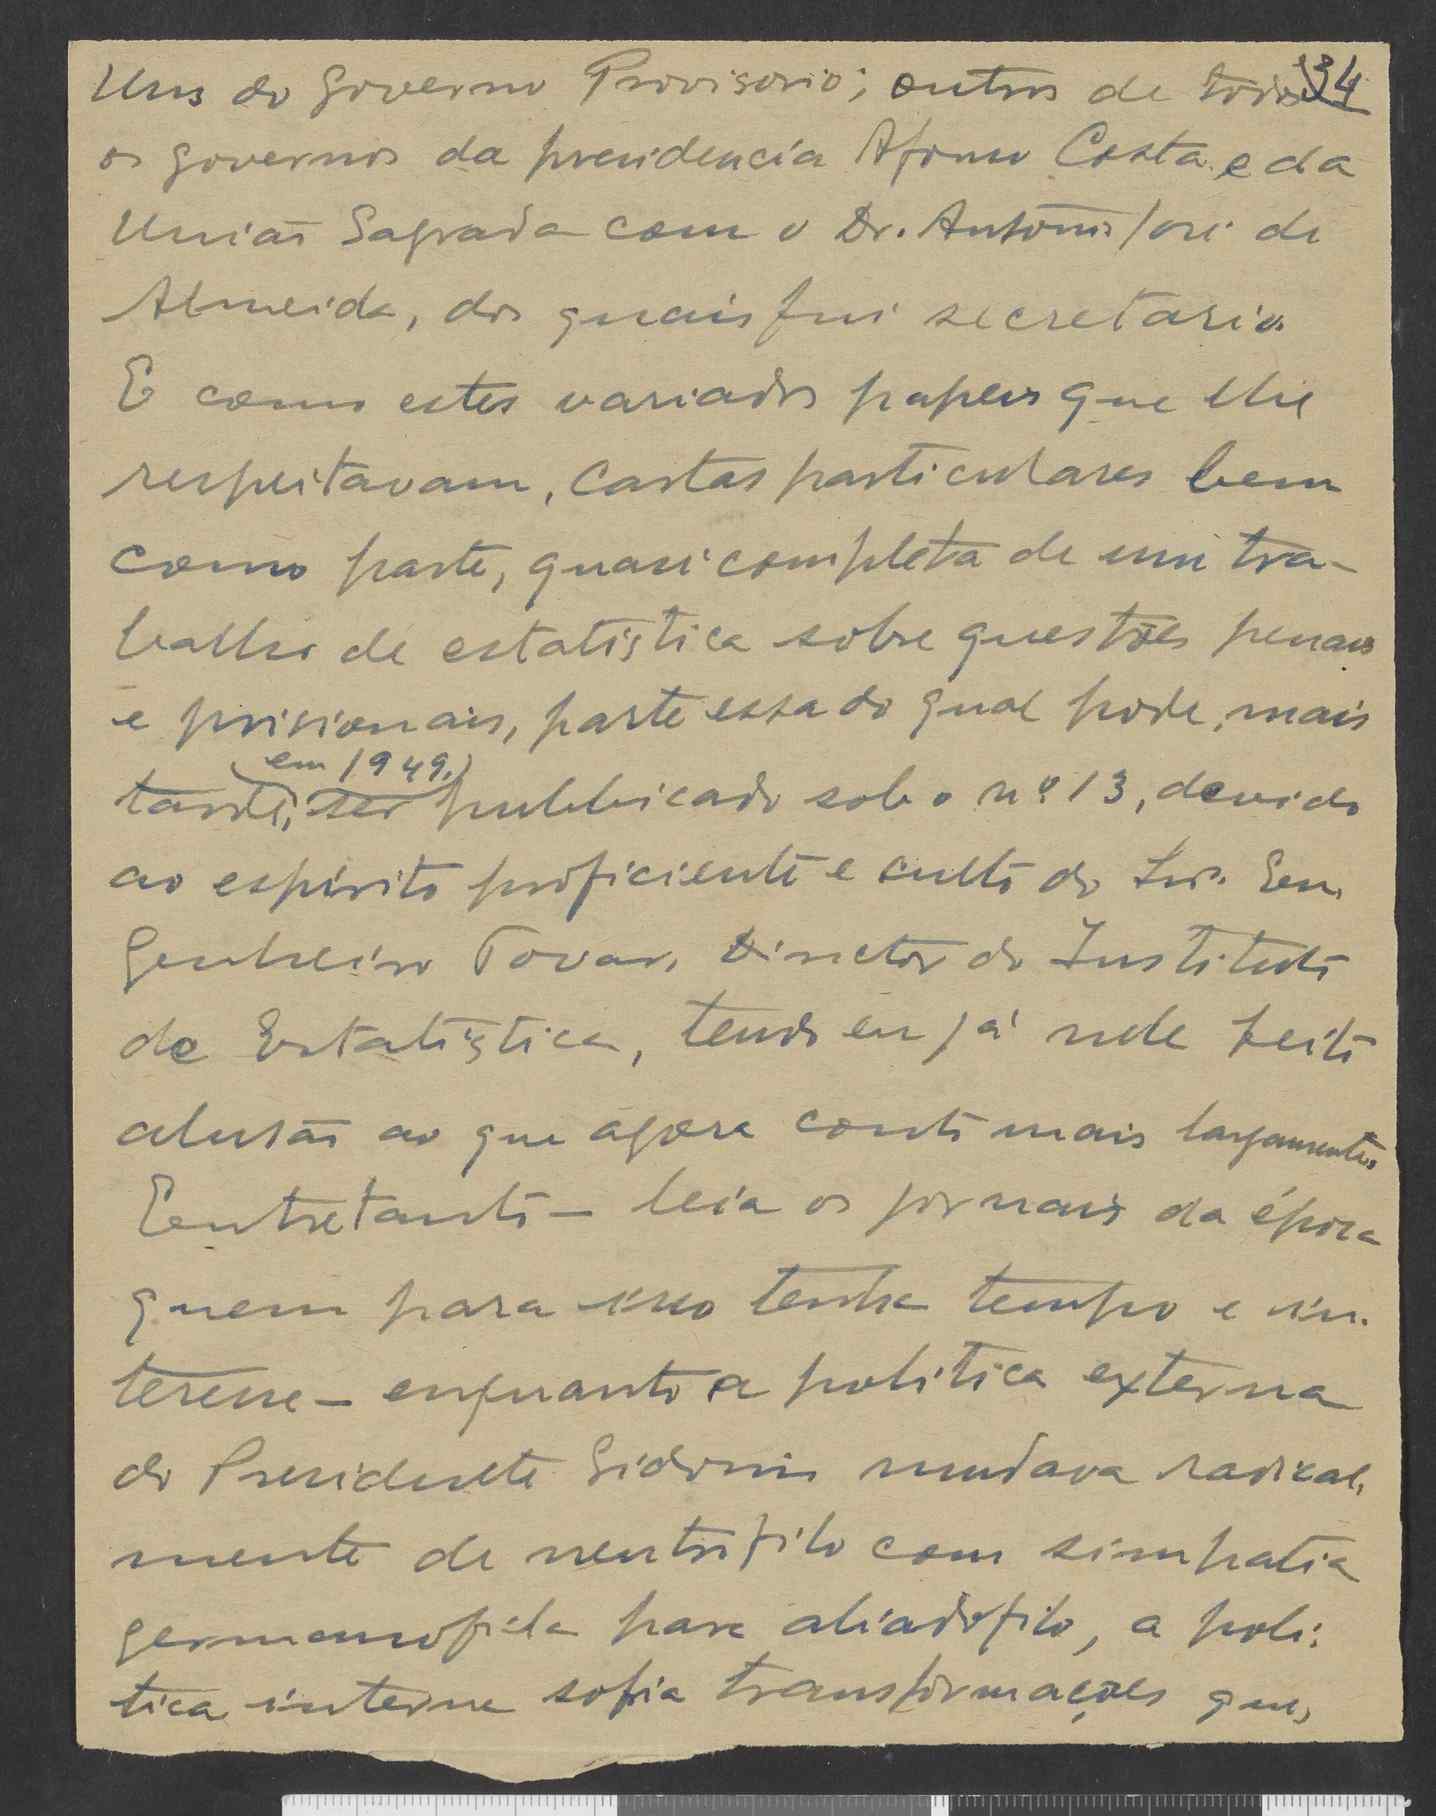 34
Uns do Governo Provisorio; outros de todos
os governos da presidencia Afonso Costa e da
União Sagrada com o Dr. António José de
Almeida, dos quais fui secretario.
E como estes variados papeis que lhe
respeitavam, cartas particulares bem
como parte, quasi completa de um tra-
balho de estatística sobre questões penais
e prisionais, parte essa do qual pode, mais
(em 1949,)
tarde, ser publicado sob o nº 13, devido
ao espírito proficiente e culto do Snr. En-
genheiro Tovar, Director do Instituto
de Estatística, tendo eu já nele feito
alusão ao que agora conto mais largamente.
Entretanto - leia os jornais da época
quem para isso tenha tempo e in-
teresse - enquanto a politica externa
do Presidente Sidonio mudava radical-
mente de neutrofilo com simpatia
germanofila para aliadofilo, a poli-
tica interna sofria transformações que,